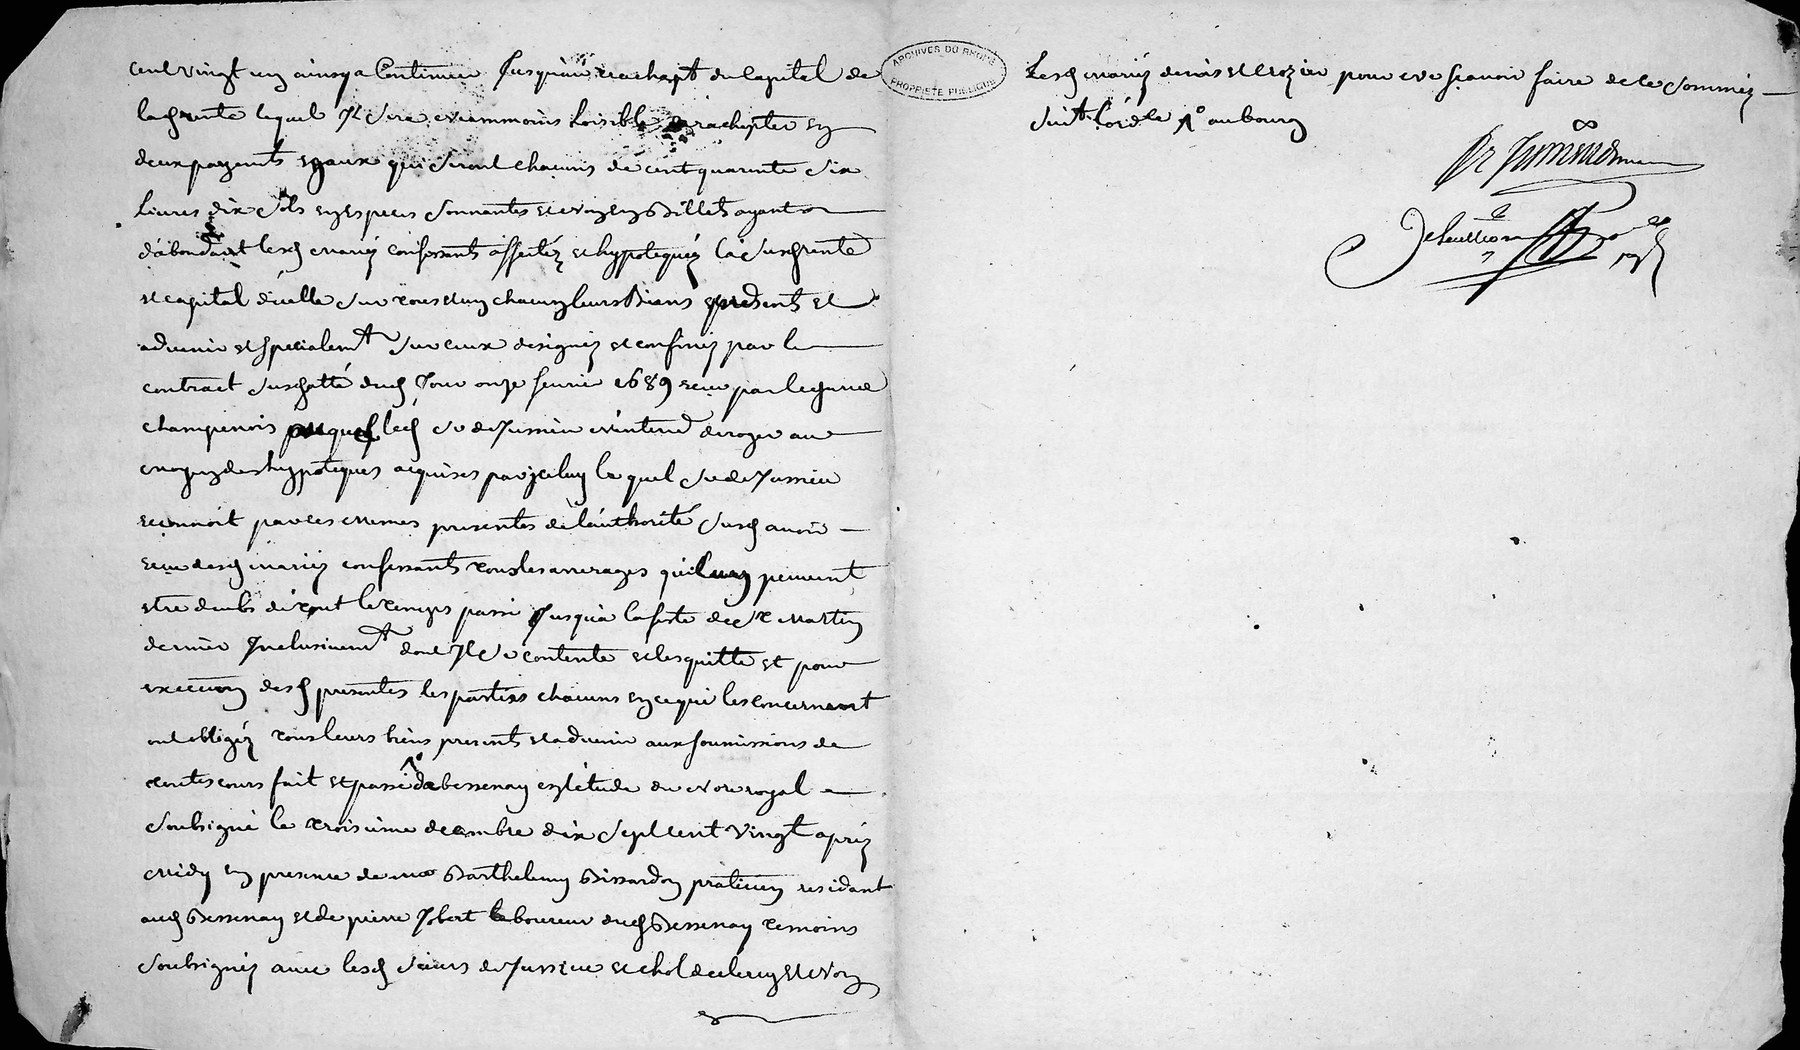 cent vingt un ainsy a Continuer Jusqu'au rachapt du Capital de
lad rente lequel Jl sera neammoins loisible de rachepter en
deux payements egaux qui seront chacuns de cent quarente six
livres dix sols en Especes Sonnantes et non en Billets ayant
d'abondant lesd mariez confessants affectéz et hypotequéz la susd rente
et capital d'icelle sur tous et un chacun leurs Biens presents et
advenir et specialemt sur ceux designéz et confinéz par le
contract susdatté dud Jour onze fevrier 1689 receu par led me
champenois auquel led sr de Jussieu n'entend deroger au
moyen des hypoteques acquises par jceluy lequel sr de Jussieu
reconnoit par ces mesmes presentes de l'authorité susd avoir
receu desd mariéz confessants tous les arrerages qui luy peuvent
etre deubs de tout le temps passé Jusqu'a la feste de St Martin
dernier Jnclusivemt dont Jl se contente et les quitte et pour
execution desd presentes les parties chacuns en ce qui les concernent
ont obligéz tous leurs biens presents et advenir aux soumissions de
toutes cours fait et passé a bessenay en l'etude du nore royal
soubsigné le troisieme decembre dix sept cent vingt apréz
midy en presence de me Barthelemy Bissardon praticien residant
aud Bessenay et de pierre Jobert laboureur dud Bessenay temoins
soubsignéz avec lesd sieurs de Jussieu et chol declerc et non
ARCHIVES DU RHÔNE
PROPRIÉTÉ PUBLIQUE
Lesd mariéz denis et crozier pour ne sçavoir faire de ce somméz
suivt l'ord ce au bourg